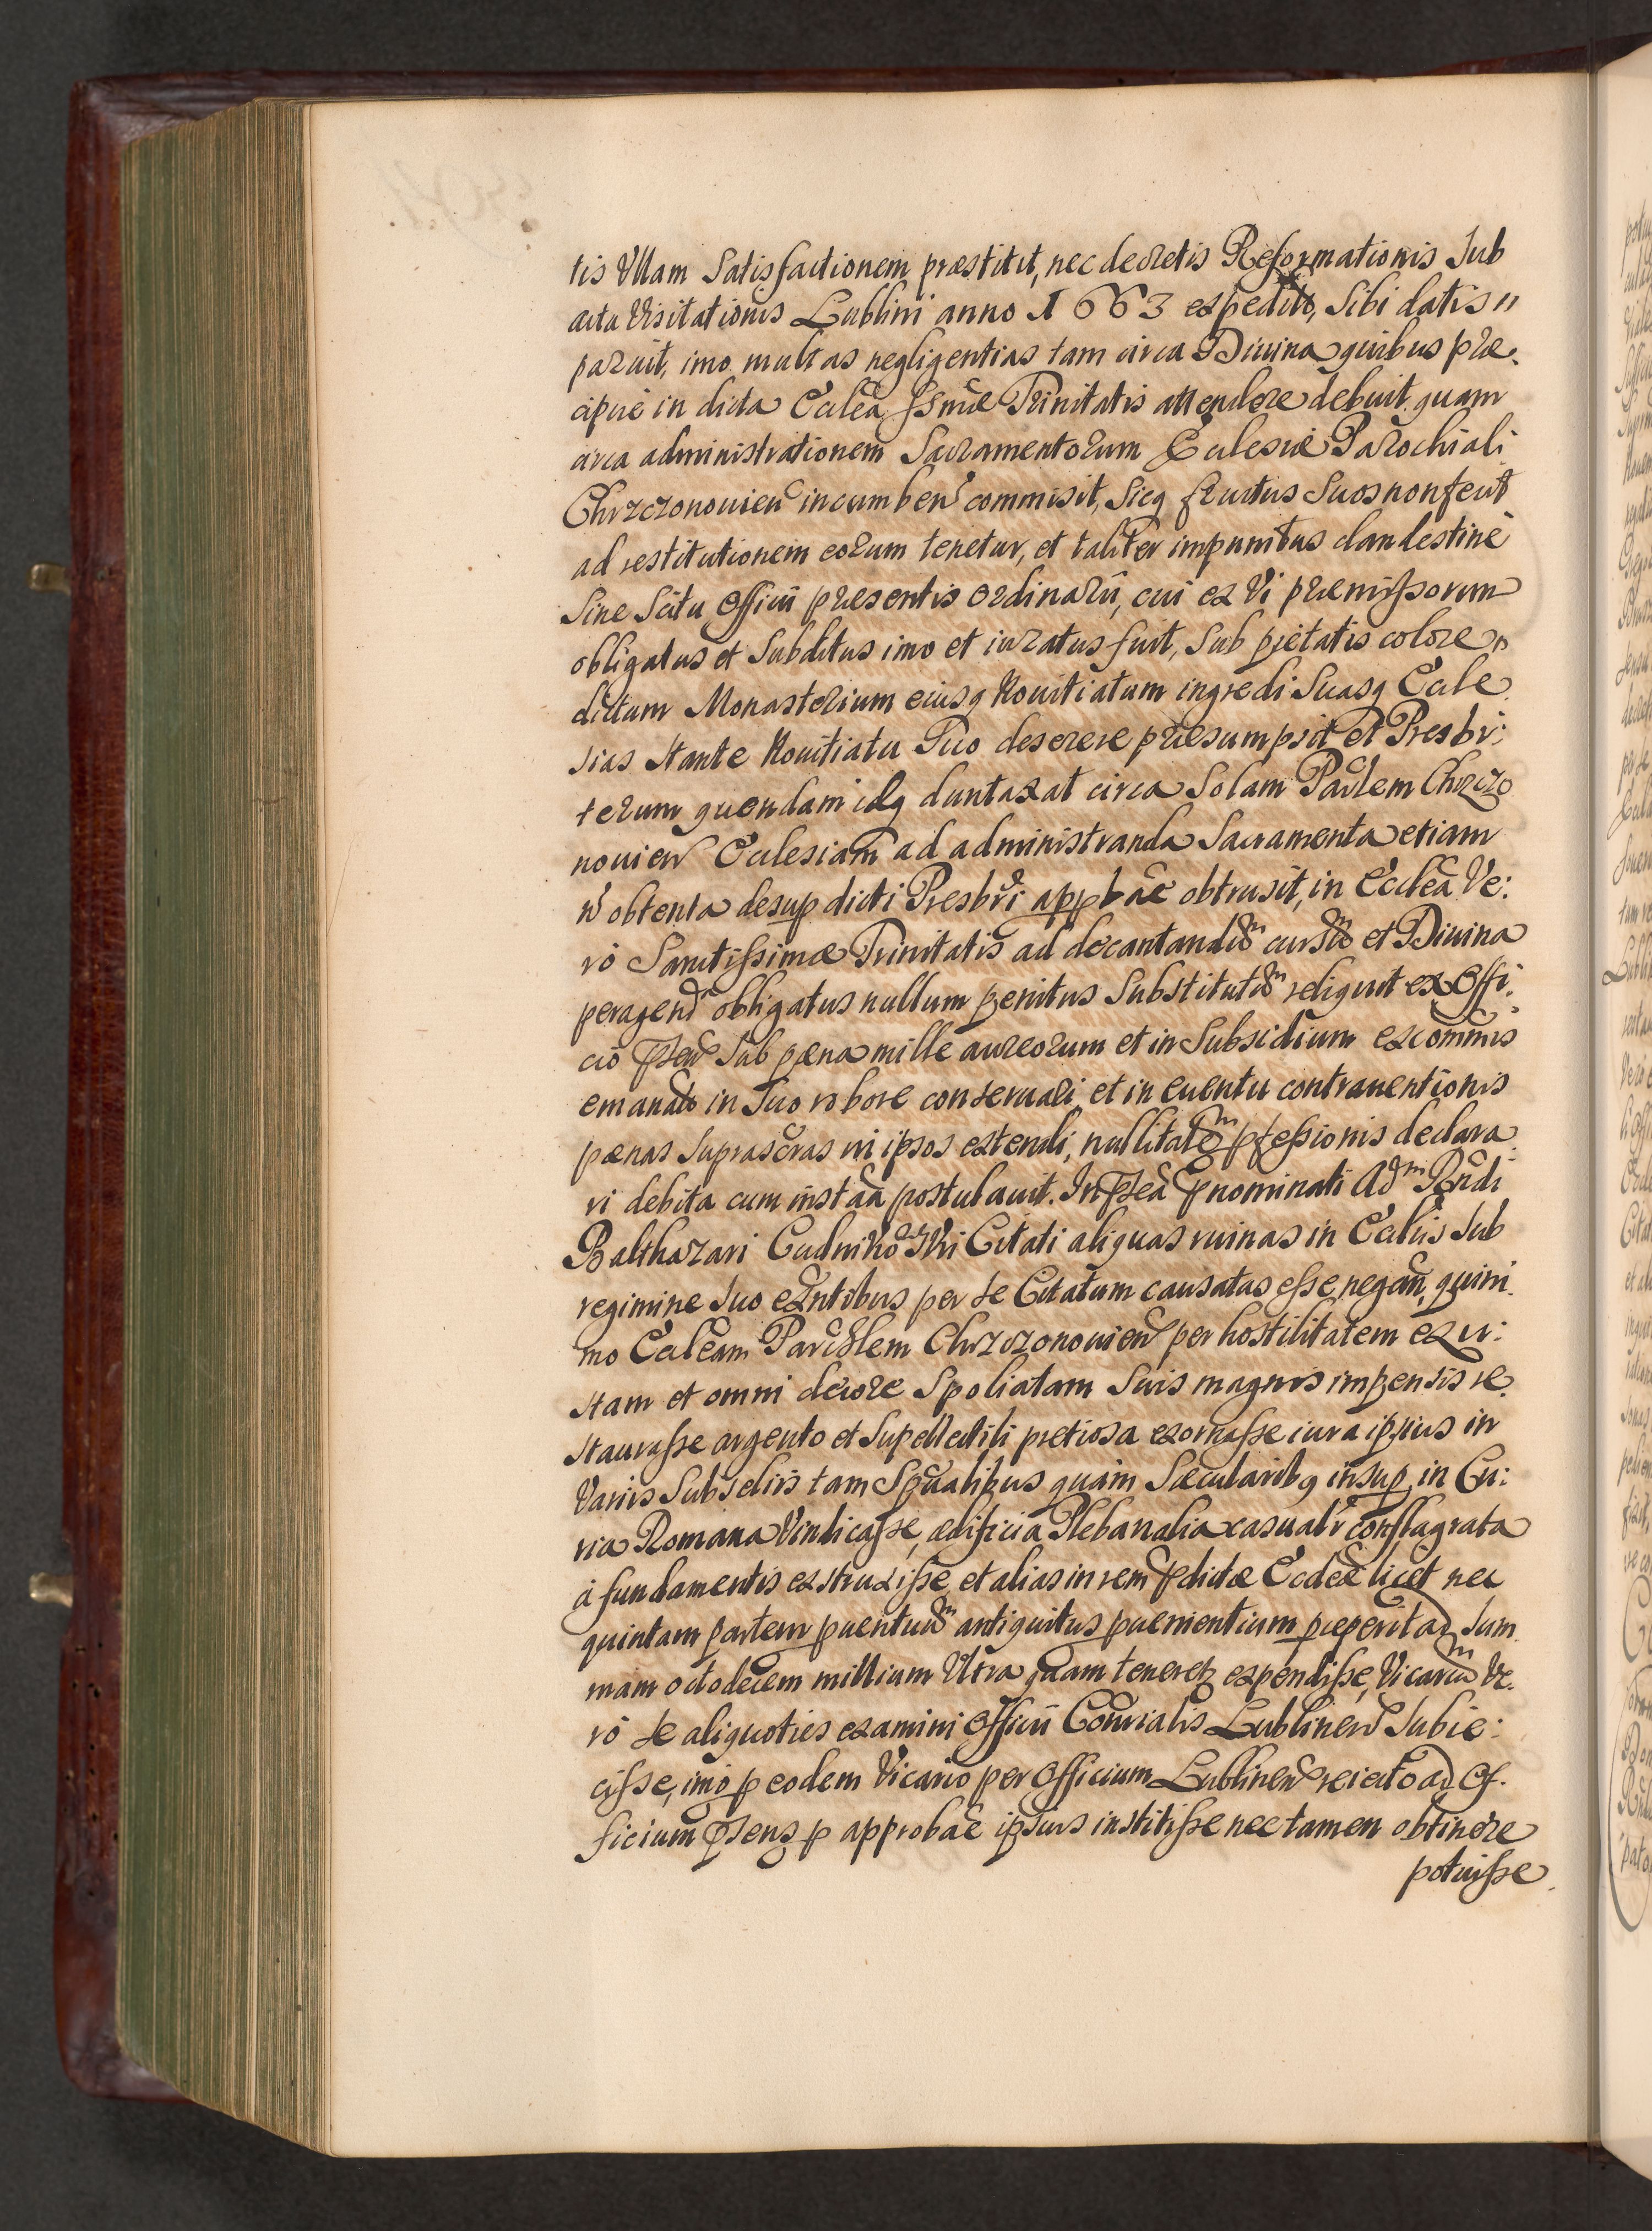 tis Ullam Satisfactionem præstitit, nec decretis Reformationis Sub
actu Visitationis Lublini anno 1663 expedito, Sibi datis
paruit, imo multas negligentias tam circa Diuina quibus præ
cipuè in dicta Eccleã SSmæ Trinitatis attendere debuit quam
circa administrationem Sacramentorum Ecclesiæ Parochiali
Chrzczonouien incumben commisit, Sicq fructus Suos non fecit
ad restitutionem eorum tenetur, et taliter impunitus clandestinè
Sine Scitu Officii præsentis Ordinarii, cui ex Vi præmissorum
obligatus et Subditus imo et iuratus fuit, Sub pietatis colore
dictum Monasterium eiusq Nouitiatum ingredi Suasq Eccle
sias Stante Nouitiatu Suo deserere præsumpsit et Presbi:
terum quendam idq duntaxat circa Solam Paclem Chrzczo
nouien Ecclesiam ad administranda Sacramenta etiam
ñ obtenta desup dicti Presbri appbãe obtrusit, in Eccleã Ve:
rò Sanctissimæ Trinitatis ad decantandũ cursũ et Diuina
peragend obligatus nullum penitus Substitutũ reliquit ex Offi:
cio psen Sub pæna mille aureorum et in Subsidium excommis
emanato in Suo robore conseruari, et in euentu contrauentionis
pænas Suprascras in ipsos extendi, nullitatẽ pfessionis declara
ri debita cum instaã postulauit. In pseã pnominati Adm Rndi
Balthazari Cudnikowski Citati aliquas ruinas in Ecclis Sub
regimine Suo exntibus per se Citatum causatas esse negan, quini
mo Eccleam Parchlem Chrzczonouien per hostilitatem exu:
stam et omni decore Spoliatam Suis magnis impensis re
staurasse argento et Supellectili pretiosa exornasse iura ipsius in
Variis Subselliis tam Spualibus quàm Sæcularibq insup in Cu:
ria Romana Vindicasse, ædificia Plebanalia casualr conflagrata
à fundamentis exstruxisse, et alias in rem pdictæ Eccleæ licet nec
quintam partem puentuũ antiquitus puenientium pceperit ad Sum
mam octodecem millium Ultra quam teneretr expendisse, Vicariũ Ve
rò se aliquoties examini Officii Conrialis Lublinen Subie:
cisse, imò p eodem Vicario per Officium Lublinen reiecto ad Of.
ficium psens p approbãe ipsius institisse nec tamen obtinere
potuisse